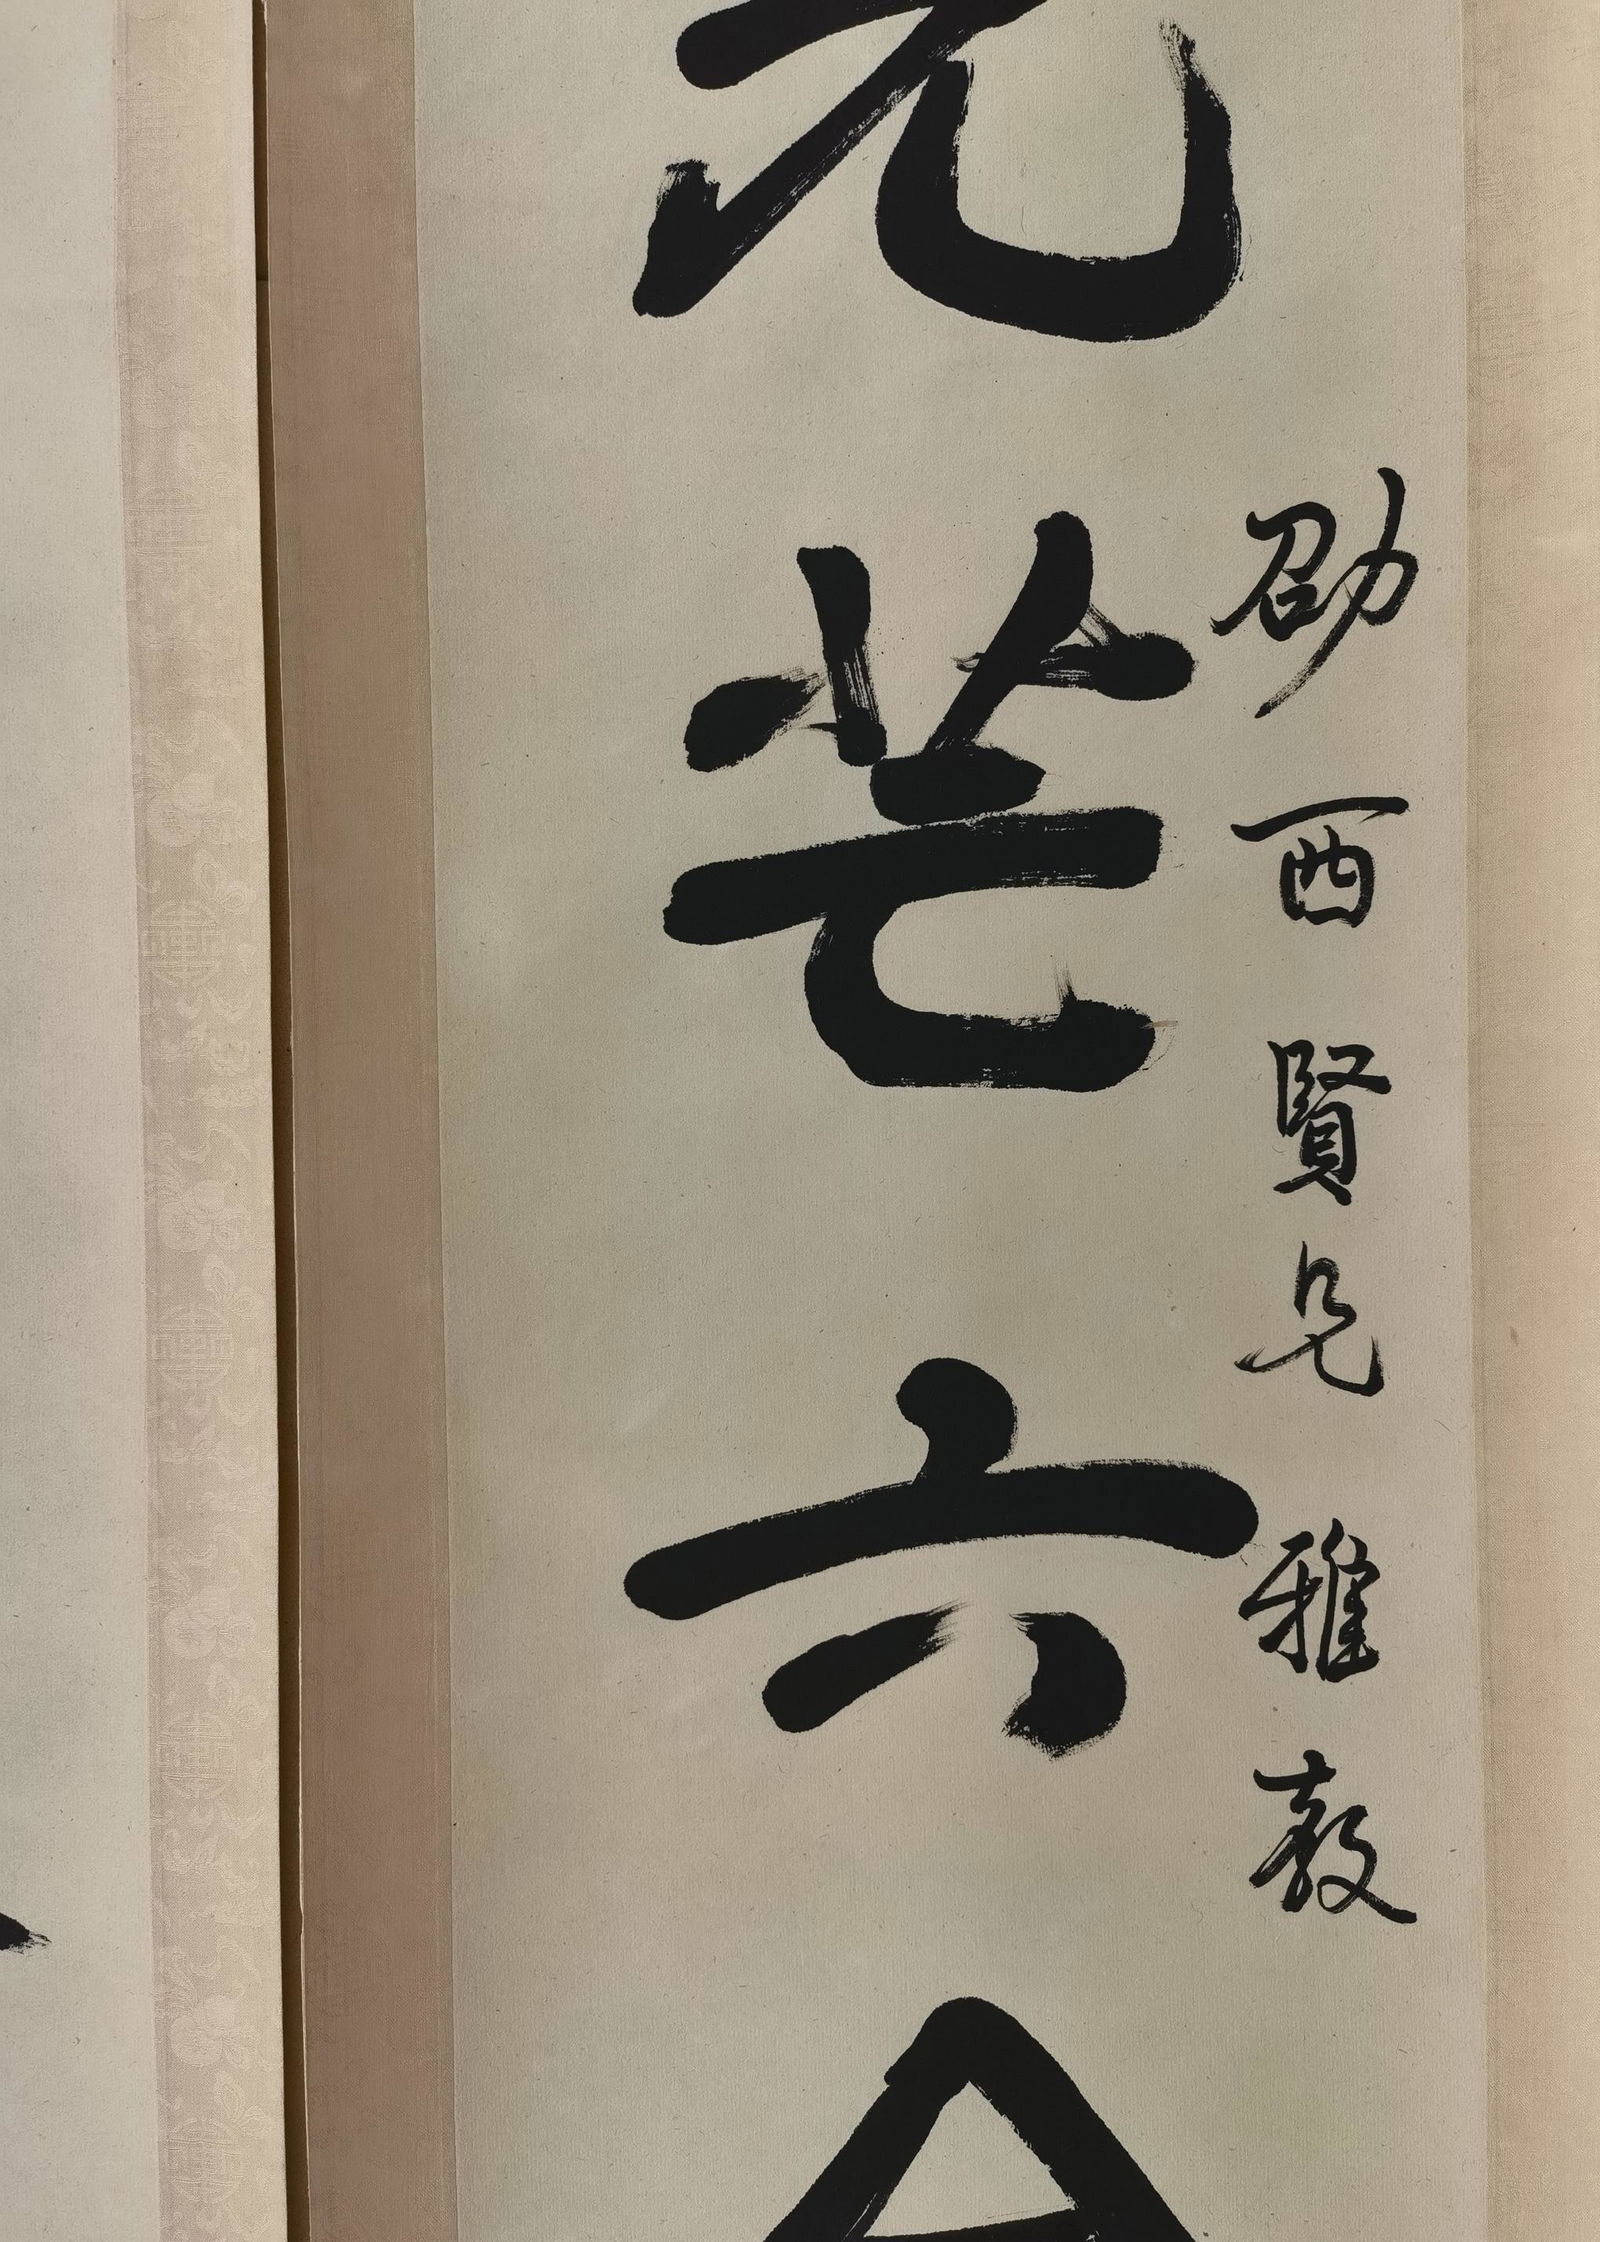 劭西賢兄雅教
光芒六